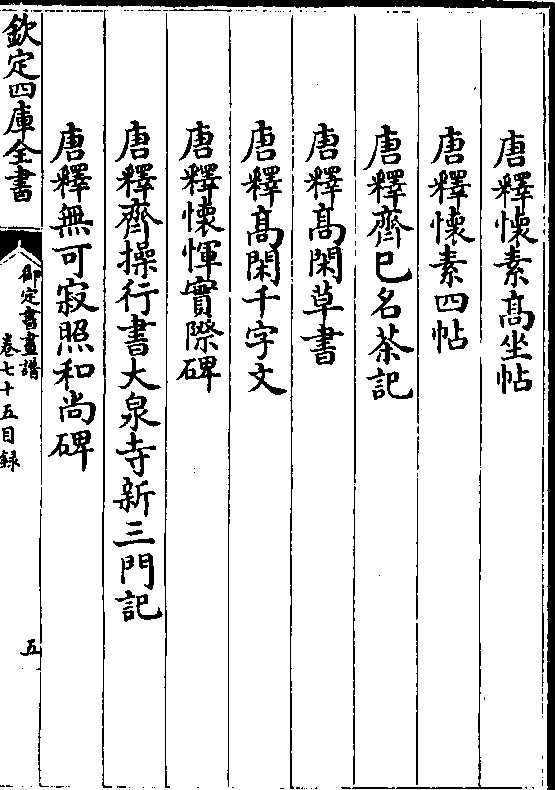 唐釋懷素髙坐帖
唐釋懷素四帖
唐釋齊已名茶記
唐釋髙閑草書
唐釋髙閑千字文
唐釋懷惲實際碑
唐釋齊操行書大泉寺新三門記
唐釋無可寂照和尚碑
欽定四庫全書
御定書畫譜
卷七十五目録
五